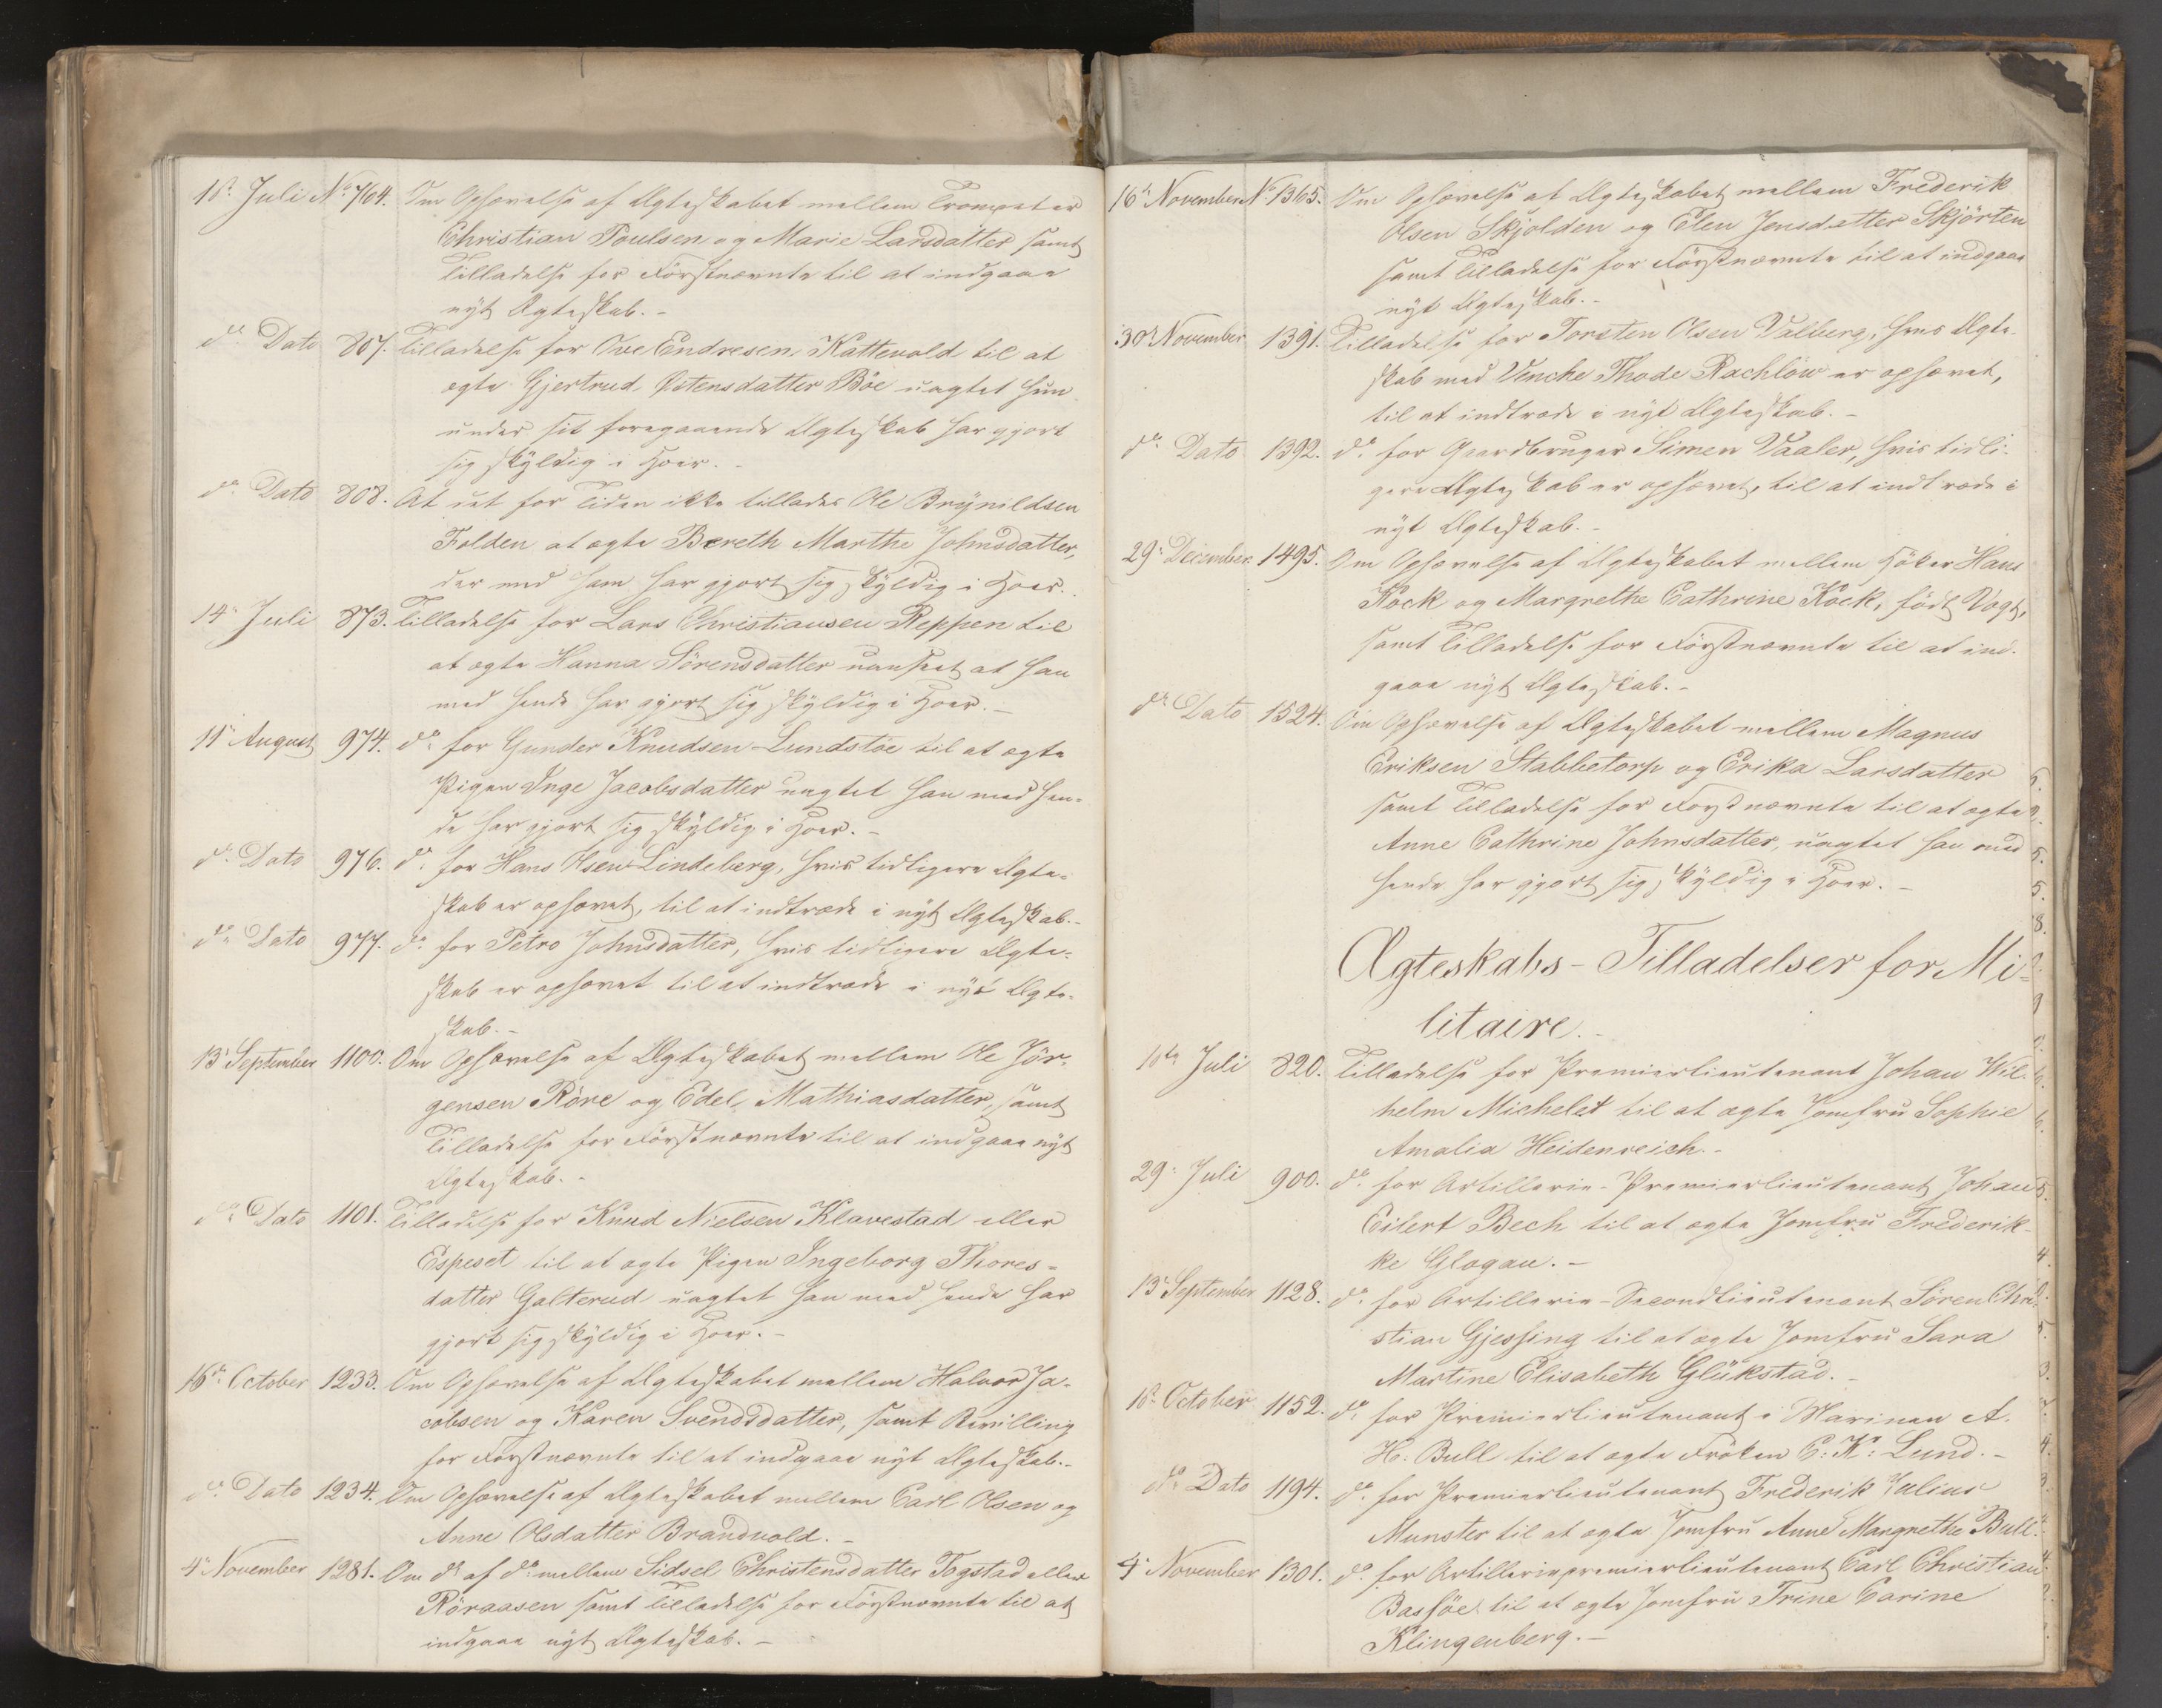 1ste Juli No 764. Om Ophævelse af Ægteskabet mellem Trompeter
Christian Poulsen og Marie Larsdatter samt
Tilladelse for Förstnævnte til at indgaae
nyt Ægteskab.-
do Dato 807. Tilladelse for Ove Endresen Kattevold til at
ægte Gjertrud Östensdatter Böe uagtet hun
under sit foregaaende Ægteskab har gjort
sig skyldig i Hoer.-
do Dato 808. At det for Tiden ikke tillades Ole Brynildsen
Folden at ægte Bereth Marthe Johnsdatter,
der med ham har gjort sig skyldig i Hoer.
14de Juli 873. Tilladelse for Lars Christiansen Reppen til
at ægte Hanna Sörensdatter uanseet at han
med hende har gjort sig skyldig i Hoer.-
11te August 974. do for Gunder Knudsen Lundstöe til at ægte
Pigen Inge Jacobsdatter uagtet han med hen-
de har gjort sig skyldig i Hoer.-
do Dato 976. do for Hans Olsen Lindeberg, hvis tidligere Ægte-
skab er ophævet, til at indtræde i nyt Ægteskab.-
do Dato 977. do for Petro Johnsdatter, hvis tidligere Ægte-
skab er ophævet til at indtræde i nyt Ægte-
skab.-
13de September 1100. Om Ophævelse af Ægteskabet mellem Ole Jör-
gensen Röre og Edel Mathiasdatter, samt
Tilladelse for Förstnævnte til at indgaae nyt
Ægteskab.-
do Dato 1101. Tilladelse for Knud Nielsen Klavestad eller
Espeset til at ægte Pigen Ingeborg Thores-
datter Galterud uagtet han med hende har
gjort sig skyldig i Hoer.-
16de October 1233. Om Ophævelse af Ægteskabet mellem Halvor Ja-
cobsen og Karen Svendsdatter, samt Bevilling
for Förstnævnte til at indgaae nyt Ægteskab.-
do Dato 1234. Om Ophævelse af Ægteskabet mellem Carl Olsen og
Anne Olsdatter Brandvold.-
4de November 1281. Om do af do mellem Sidsel Christensdatter Togstad eller
Röraasen samt Tilladelse for Förstnævnte til at
indgaae nyt Ægteskab.-
16de November No 1365. Om Ophævelse af Ægteskabet mellem Frederik
Olsen Skjolden og Elen Jensdatter Skjörten
samt Tilladelse for Förstnævnte til at indgaae
nyt Ægteskab.-
30te November 1391. Tilladelse for Torsten Olsen Valberg, hvis Ægte-
skab med Venche Thode Rachlöw er ophævet,
til at indtræde i nyt Ægteskab.-
do Dato 1392. do for Gaardbruger Simen Vaaler, hvis tidli-
gere Ægteskab er ophævet, til at indtræde i
nyt Ægteskab.-
29de December 1495. Om Ophævelse af Ægteskabet mellem Höker Hans
Kock og Margrethe Cathrine Kock, födt Vogt,
samt Tilladelse for Förstnævnte til at ind-
gaae nyt Ægteskab.-
do Dato 1524. Om Ophævelse af Ægteskabet mellem Magnus
Eriksen Stabbetorp og Erika Larsdatter
samt Tilladelse for Förstnævnte til at ægte
Anne Cathrine Johnsdatter, uagtet han med
hende har gjort sig skyldig i Hoer.-
Ægteskabs-Tilladelser for Mi-
litaire.-
10de Juli 820. Tilladelse for Premierlieutenant Johan Wil-
helm Michelet til at ægte Jomfru Sophie
Amalia Heidenreich.-
29de Juli 900. do for Artillerie-Premierlieutenant Johan
Eilert Bech til at ægte Jomfru Frederik-
ke Glogau.-
13de September 1128. do for Artillerie-Secondlieutenant Sören Chri-
stian Gjessing til at ægte Jomfru Sara
Martine Elisabeth Glükstad.-
1ste October 1152. do for Premierlieutenant i Marinen A.
H: Bull til at ægte Fröken C: K: Lund.-
do Dato 1194. do for Premierlieutenant Frederik Julius
Munster til at ægte Jomfru Anne Margrethe Bull.
4de November 1301. do for Artilleriepremierlieutenant Carl Christian
Bassöe til at ægte Jomfru Trine Carine
Klingenberg.-